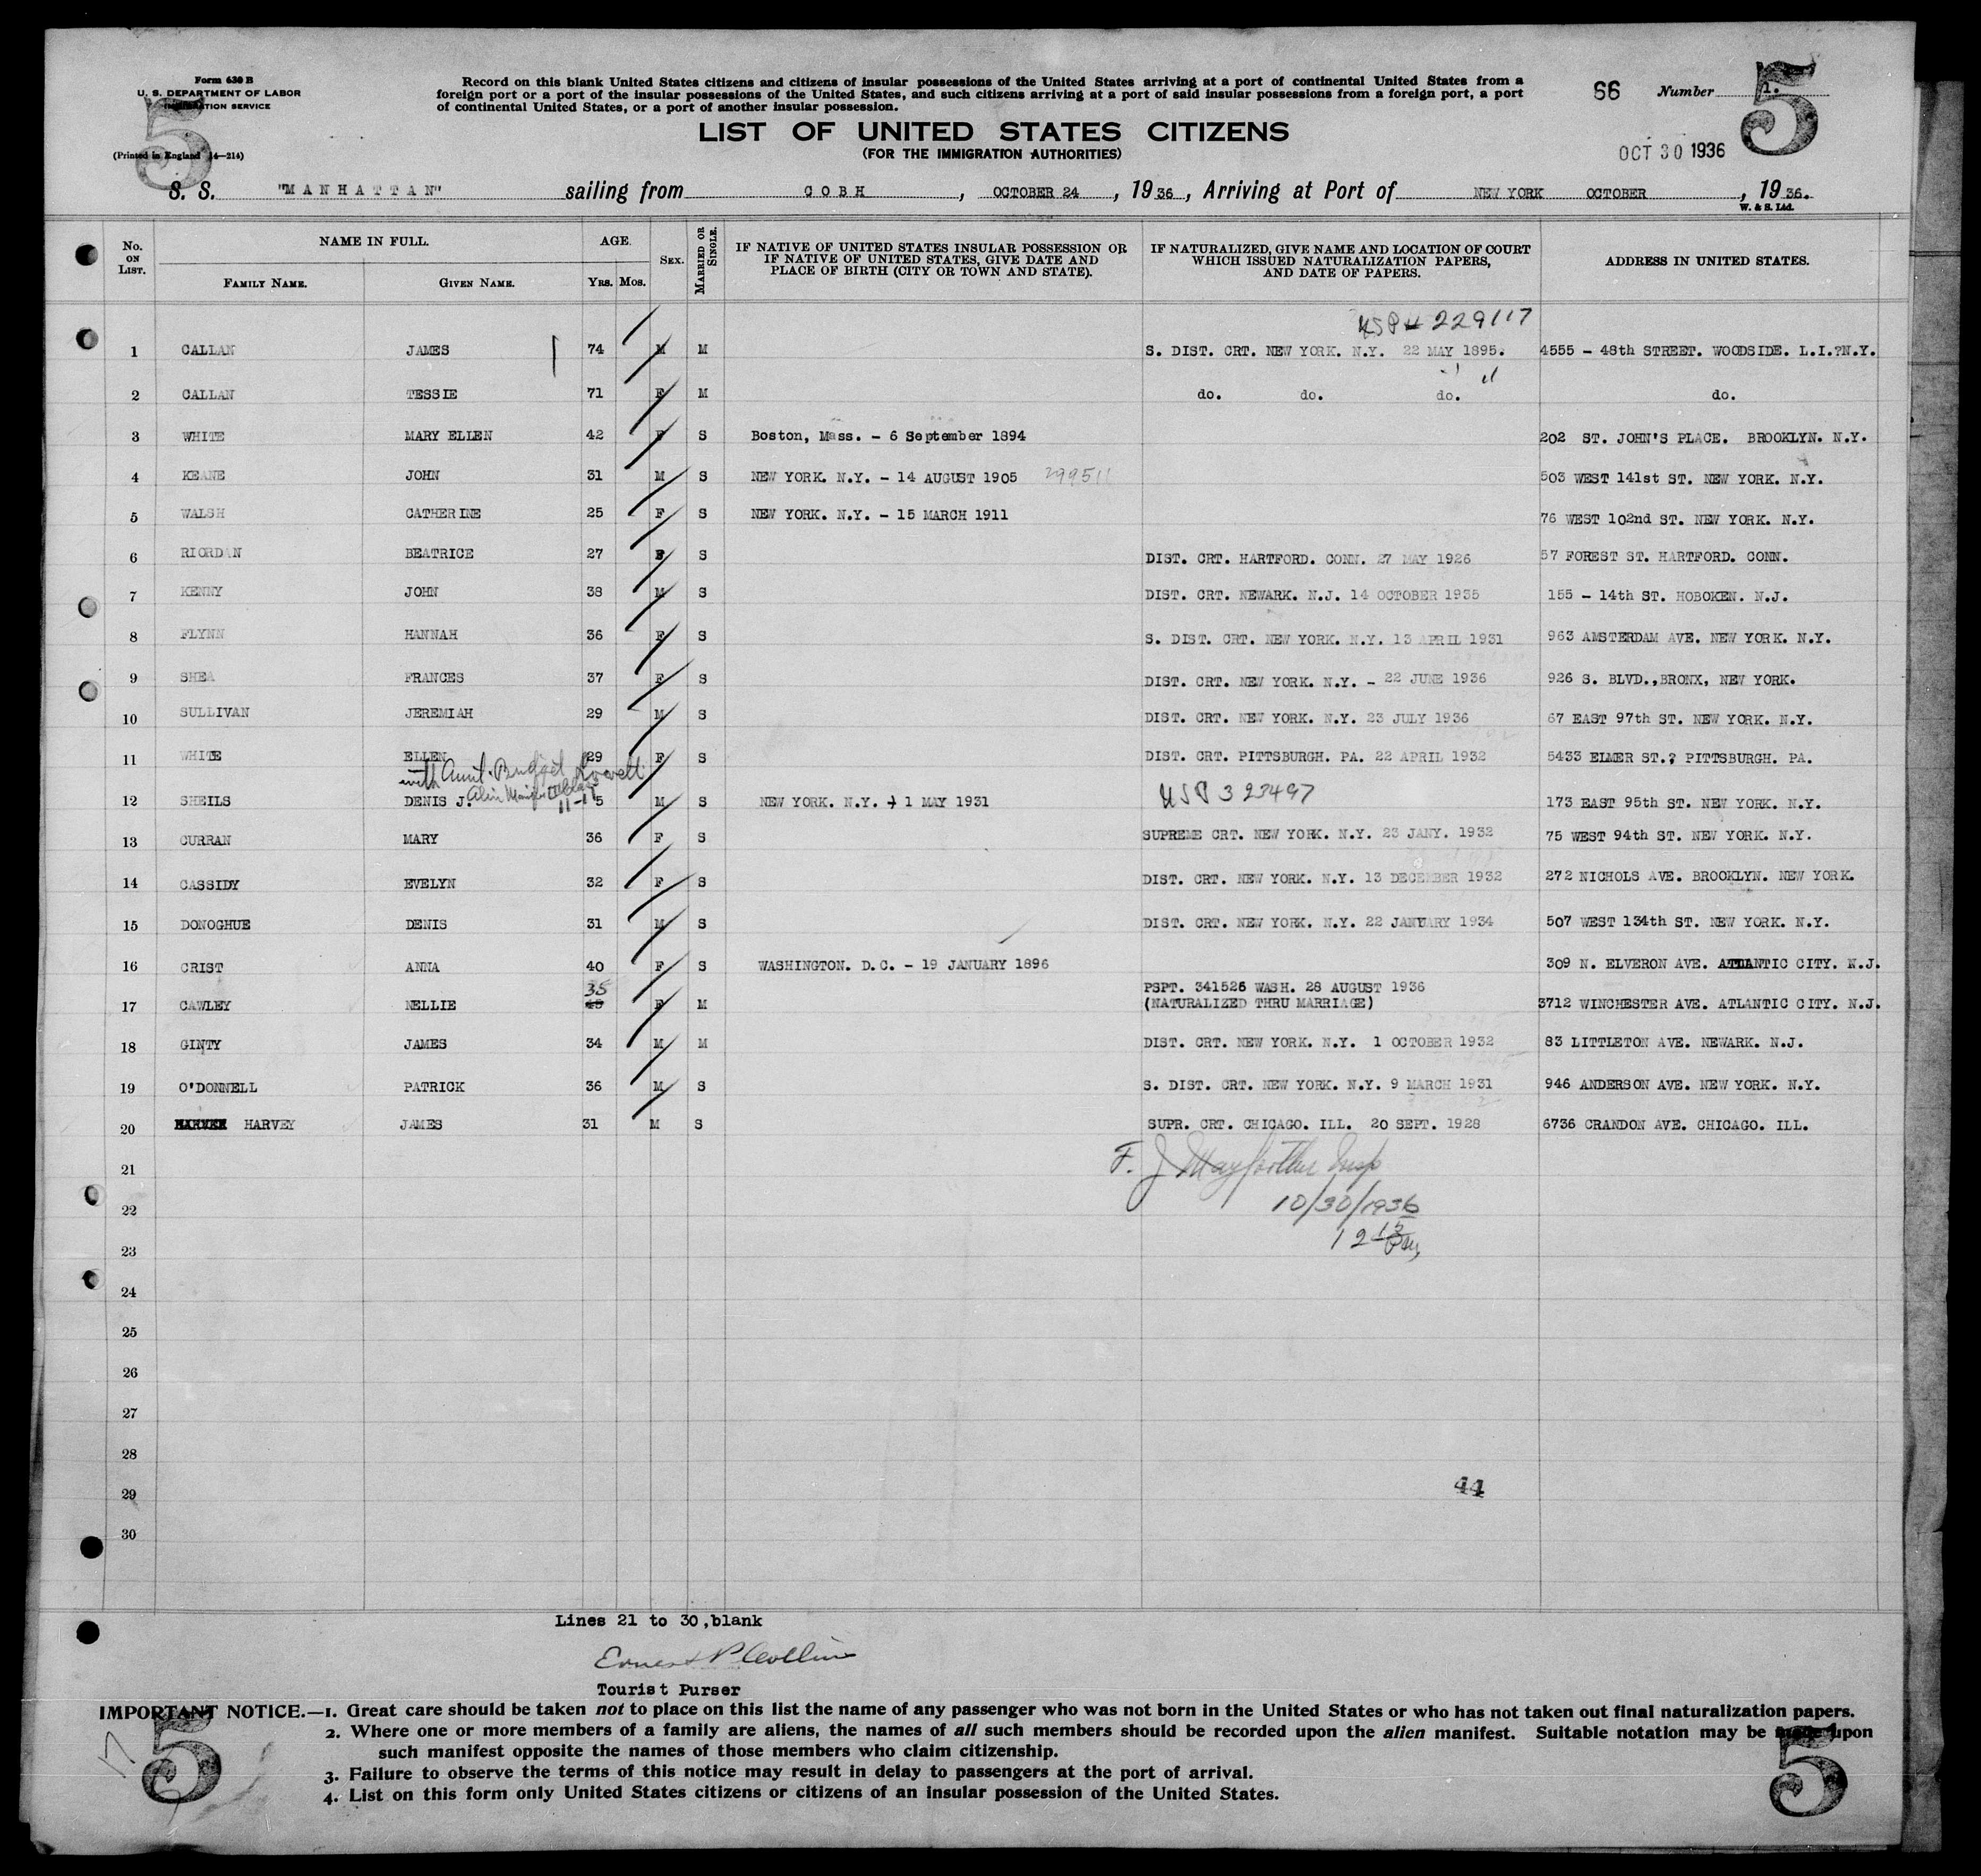 Form 630 B
U. S. DEPARTMENT OF LABOR
IMMIGRATION SERVICE
(Printed in England 14—214)
5
Record on this blank United States citizens and citizens of insular possessions of the United States arriving at a port of continental United States from a
foreign port or a port of the insular possessions of the United States, and such citizens arriving at a port of said insular possessions from a foreign port, a port
of continental United States, or a port of another insular possession.
66 Number 1. 5
LIST OF UNITED STATES CITIZENS
(FOR THE IMMIGRATION AUTHORITIES)
OCT 30 1936
S. S. "MANHATTAN" sailing from COBH, OCTOBER 24, 1936, Arriving at Port of NEW YORK OCTOBER, 1936.
W. & S. Ltd.
No. ON LIST. NAME IN FULL. FAMILY NAME. GIVEN NAME. AGE. YRS. MOS. SEX. MARRIED OR SINGLE. IF NATIVE OF UNITED STATES INSULAR POSSESSION OR IF NATIVE OF UNITED STATES, GIVE DATE AND PLACE OF BIRTH (CITY OR TOWN AND STATE). IF NATURALIZED, GIVE NAME AND LOCATION OF COURT WHICH ISSUED NATURALIZATION PAPERS, AND DATE OF PAPERS. ADDRESS IN UNITED STATES.
USP# 229117
1 CALLAN JAMES 74 M M S. DIST. CRT. NEW YORK. N.Y. 22 MAY 1895. 4555 - 48th STREET. WOODSIDE. L.I.?N.Y.
2 CALLAN TESSIE 71 F M do. do. do. do.
3 WHITE MARY ELLEN 42 F S Boston, Mass. - 6 September 1894 202 ST. JOHN'S PLACE. BROOKLYN. N.Y.
4 KEANE JOHN 31 M S NEW YORK. N.Y. - 14 AUGUST 1905 299511 503 WEST 141st ST. NEW YORK. N.Y.
5 WALSH CATHERINE 25 F S NEW YORK. N.Y. - 15 MARCH 1911 76 WEST 102nd ST. NEW YORK. N.Y.
6 RIORDAN BEATRICE 27 F S DIST. CRT. HARTFORD. CONN. 27 MAY 1926 57 FOREST ST. HARTFORD. CONN.
7 KENNY JOHN 38 M S DIST. CRT. NEWARK. N.J. 14 OCTOBER 1935 155 - 14th ST. HOBOKEN. N.J.
8 FLYNN HANNAH 36 F S S. DIST. CRT. NEW YORK. N.Y. 13 APRIL 1931 963 AMSTERDAM AVE. NEW YORK. N.Y.
9 SHEA FRANCES 37 F S DIST. CRT. NEW YORK. N.Y. - 22 JUNE 1936 926 S. BLVD.,BRONX, NEW YORK.
10 SULLIVAN JEREMIAH 29 M S DIST. CRT. NEW YORK. N.Y. 23 JULY 1936 67 EAST 97th ST. NEW YORK. N.Y.
11 WHITE ELLEN 29 F S DIST. CRT. PITTSBURGH. PA. 22 APRIL 1932 5433 ELMER ST.? PITTSBURGH. PA.
with Aunt. Bridget
11-11
USP 323497
12 SHEILS DENIS J. 5 M S NEW YORK. N.Y. + 1 MAY 1931 173 EAST 95th ST. NEW YORK. N.Y.
13 CURRAN MARY 36 F S SUPREME CRT. NEW YORK. N.Y. 23 JANY. 1932 75 WEST 94th ST. NEW YORK. N.Y.
14 CASSIDY EVELYN 32 F S DIST. CRT. NEW YORK. N.Y. 13 DECEMBER 1932 272 NICHOLS AVE. BROOKLYN. NEW YORK.
15 DONOGHUE DENIS 31 M S DIST. CRT. NEW YORK. N.Y. 22 JANUARY 1934 507 WEST 134th ST. NEW YORK. N.Y.
16 CRIST ANNA 40 F S WASHINGTON. D.C. - 19 JANUARY 1896 309 N. ELVERON AVE. ATLANTIC CITY. N.J.
35 PSPT. 341526 WASH. 28 AUGUST 1936
17 CAWLEY NELLIE 45 F M (NATURALIZED THRU MARRIAGE) 3712 WINCHESTER AVE. ATLANTIC CITY. N.J.
18 GINTY JAMES 34 M M DIST. CRT. NEW YORK. N.Y. 1 OCTOBER 1932 83 LITTLETON AVE. NEWARK. N.J.
19 O'DONNELL PATRICK 36 M S S. DIST. CRT. NEW YORK. N.Y. 9 MARCH 1931 946 ANDERSON AVE. NEW YORK. N.Y.
20 HARVEY JAMES 31 M S SUPR. CRT. CHICAGO. ILL. 20 SEPT. 1928 6736 CRANDON AVE. CHICAGO. ILL.
21 F. J. Insp
22 10/30/1936
23 12 15 Pm
24
25
26
27
28
29 44
30
Lines 21 to 30,blank
Ernest P Collins
Tourist Purser
IMPORTANT NOTICE.—1. Great care should be taken not to place on this list the name of any passenger who was not born in the United States or who has not taken out final naturalization papers.
2. Where one or more members of a family are aliens, the names of all such members should be recorded upon the alien manifest. Suitable notation may be made upon
such manifest opposite the names of those members who claim citizenship.
3. Failure to observe the terms of this notice may result in delay to passengers at the port of arrival.
4. List on this form only United States citizens or citizens of an insular possession of the United States.
17 5 5